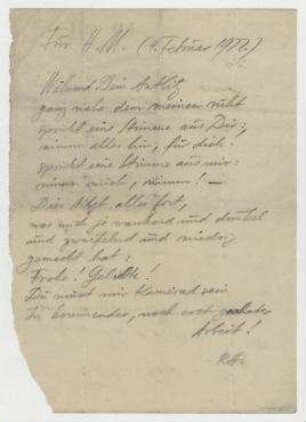 Für H. M. (4. Februar 1922.)
Während Dein Antlitz
ganz nahe dem meinen ruht
spricht eine Stimme aus Dir:
nimm alles hin, für dich!
spricht eine Stimme aus mir:
nimm mich, nimm! —
Dies alles fort,
was mich je wankend und dunkel
und zweifelnd und niedrig
gemacht hat:
Frohe! Geliebte!
Du musst mir Kamerad sein
In kommender, noch erst
Arbeit!